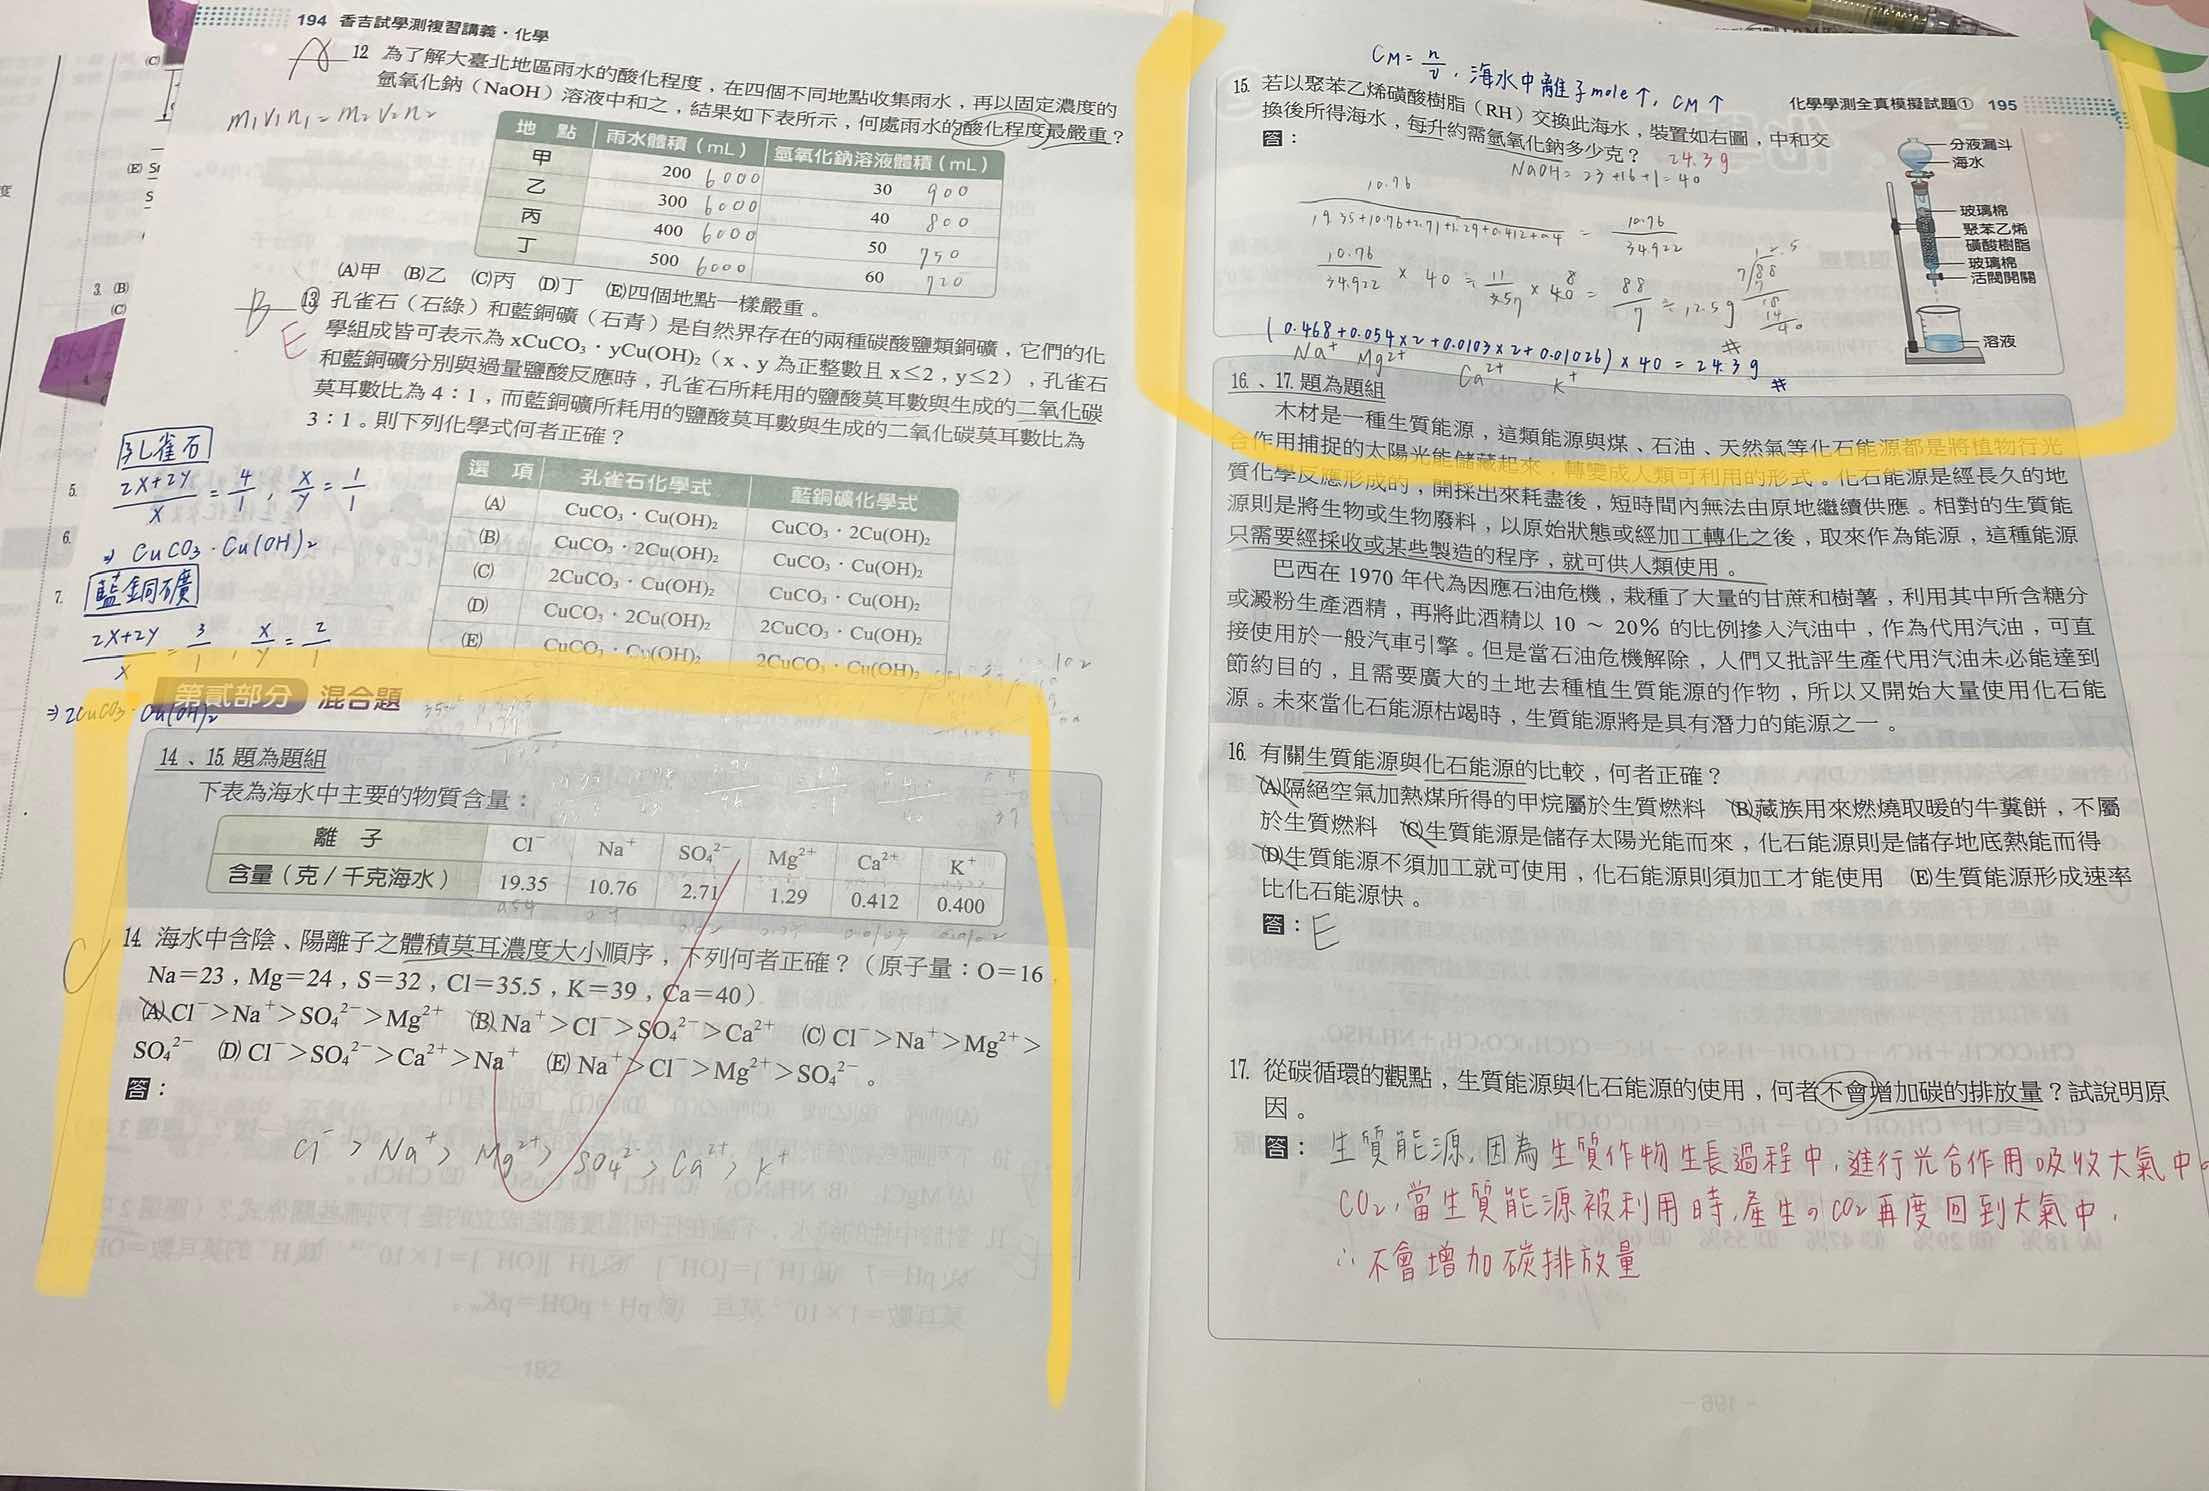 194 香吉試學測複習講義・化學
A
12 為了解大臺北地區雨水的酸化程度，在四個不同地點收集雨水，再以固定濃度的
氫氧化鈉（NaOH）溶液中和之，結果如下表所示，何處雨水的酸化程度最嚴重？
M₁V₁n₁=M₂V₂n₂
地 點 雨水體積（mL） 氫氧化鈉溶液體積（mL）
甲 200 6000 30 900
乙 300 6000 40 800
丙 400 6000 50 750
丁 500 6000 60 720
(A)甲 (B)乙 (C)丙 (D)丁 (E)四個地點一樣嚴重。
B
E
13 孔雀石（石綠）和藍銅礦（石青）是自然界存在的兩種碳酸鹽類銅礦，它們的化
學組成皆可表示為 xCuCO₃・yCu(OH)₂（x、y 為正整數且 x≤2，y≤2），孔雀石
和藍銅礦分別與過量鹽酸反應時，孔雀石所耗用的鹽酸莫耳數與生成的二氧化碳
莫耳數比為 4：1，而藍銅礦所耗用的鹽酸莫耳數與生成的二氧化碳莫耳數比為
3：1。則下列化學式何者正確？
孔雀石
2x+2y/x = 4/1 , x/y = 1/1
⇒ CuCO₃・Cu(OH)₂
藍銅礦
2x+2y/x = 3/1 , x/y = 2/1
⇒ 2CuCO₃・Cu(OH)₂
選 項 孔雀石化學式 藍銅礦化學式
(A) CuCO₃・Cu(OH)₂ CuCO₃・2Cu(OH)₂
(B) CuCO₃・2Cu(OH)₂ CuCO₃・Cu(OH)₂
(C) 2CuCO₃・Cu(OH)₂ CuCO₃・Cu(OH)₂
(D) CuCO₃・2Cu(OH)₂ 2CuCO₃・Cu(OH)₂
(E) CuCO₃・Cu(OH)₂ 2CuCO₃・Cu(OH)₂
第貳部分 混合題
14、15.題為題組
下表為海水中主要的物質含量：
離 子 Cl⁻ Na⁺ SO₄²⁻ Mg²⁺ Ca²⁺ K⁺
含量（克／千克海水） 19.35 10.76 2.71 1.29 0.412 0.400
C
14. 海水中含陰、陽離子之體積莫耳濃度大小順序，下列何者正確？（原子量：O＝16，
Na＝23，Mg＝24，S＝32，Cl＝35.5，K＝39，Ca＝40）
(A) Cl⁻＞Na⁺＞SO₄²⁻＞Mg²⁺ (B) Na⁺＞Cl⁻＞SO₄²⁻＞Ca²⁺ (C) Cl⁻＞Na⁺＞Mg²⁺＞
SO₄²⁻ (D) Cl⁻＞SO₄²⁻＞Ca²⁺＞Na⁺ (E) Na⁺＞Cl⁻＞Mg²⁺＞SO₄²⁻。
答：
Cl⁻ > Na⁺ > Mg²⁺ > SO₄²⁻ > Ca²⁺ > K⁺
化學學測全真模擬試題① 195
CM = n/V , 海水中離子mole↑, CM↑
15. 若以聚苯乙烯磺酸樹脂（RH）交換此海水，裝置如右圖，中和交
換後所得海水，每升約需氫氧化鈉多少克？ 24.3g
答：
NaOH = 23+16+1=40
10.76/19.35+10.76+2.71+1.29+0.412+0.4 = 10.76/34.922
10.76/34.922 × 40 ≒ 11/35 × 40 = 88/7 ≒ 12.5g
(0.468+0.054×2+0.0103×2+0.01026)×40 = 24.3g #
Na⁺ Mg²⁺ Ca²⁺ K⁺
分液漏斗
海水
玻璃棉
聚苯乙烯
磺酸樹脂
玻璃棉
活閥開關
溶液
16.、17.題為題組
木材是一種生質能源，這類能源與煤、石油、天然氣等化石能源都是將植物行光
合作用捕捉的太陽光能儲藏起來，轉變成人類可利用的形式。化石能源是經長久的地
質化學反應形成的，開採出來耗盡後，短時間內無法由原地繼續供應。相對的生質能
源則是將生物或生物廢料，以原始狀態或經加工轉化之後，取來作為能源，這種能源
只需要經採收或某些製造的程序，就可供人類使用。
巴西在 1970 年代為因應石油危機，栽種了大量的甘蔗和樹薯，利用其中所含糖分
或澱粉生產酒精，再將此酒精以 10 ～ 20% 的比例摻入汽油中，作為代用汽油，可直
接使用於一般汽車引擎。但是當石油危機解除，人們又批評生產代用汽油未必能達到
節約目的，且需要廣大的土地去種植生質能源的作物，所以又開始大量使用化石能
源。未來當化石能源枯竭時，生質能源將是具有潛力的能源之一。
16. 有關生質能源與化石能源的比較，何者正確？
(A)隔絕空氣加熱煤所得的甲烷屬於生質燃料 (B)藏族用來燃燒取暖的牛糞餅，不屬
於生質燃料 (C)生質能源是儲存太陽光能而來，化石能源則是儲存地底熱能而得
(D)生質能源不須加工就可使用，化石能源則須加工才能使用 (E)生質能源形成速率
比化石能源快。
答：E
17. 從碳循環的觀點，生質能源與化石能源的使用，何者不會增加碳的排放量？試說明原
因。
答：生質能源,因為生質作物生長過程中,進行光合作用吸收大氣中的
CO₂,當生質能源被利用時,產生の CO₂再度回到大氣中,
∴不會增加碳排放量